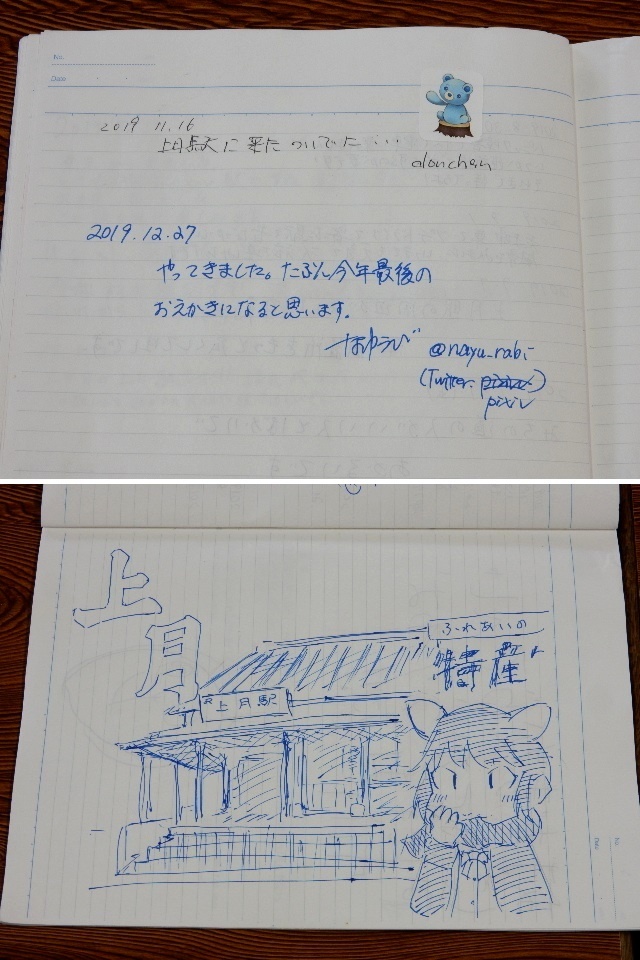 No.
Date
2019 11.16
上月駅に来たついでに...
alouchan
2019.12.27
やってきました。たぶん今年最後の
おえかきになると思います。
なゆらび @nayu_rabi
(Twitter.
pixiv
上月
ふれあいの
上月駅
Date
No.